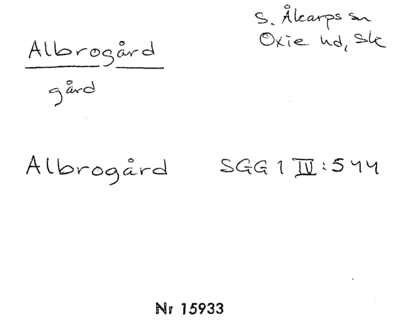 S. Åkarps sn
Oxie hd, Sk
Albrogård
gård
Albrogård SGG 1 IV:544
Nr 15933